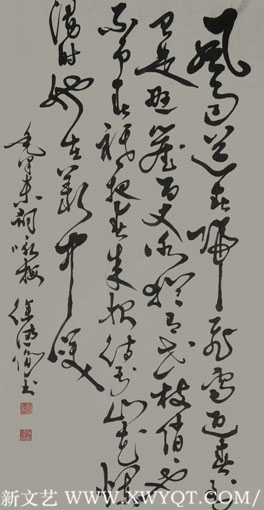 風雨送春歸飛雪迎春到
已是懸崖百丈冰猶有花枝俏俏也
不爭春只把春來報待到山花爛
漫時她在叢中笑
毛澤東詞咏梅 徐
新文艺 www.XWYQT.COM/